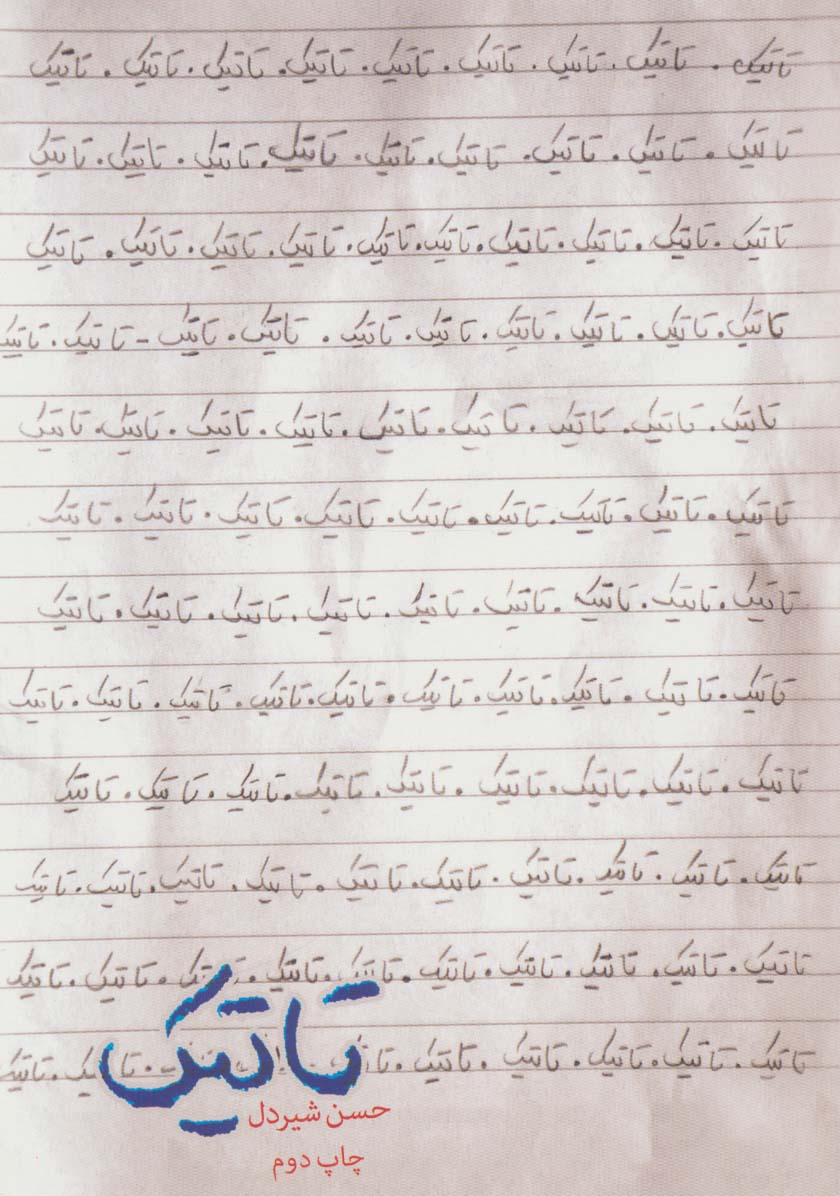 تاتیک . تاتیک . تاتیک . تاتیک . تاتیک . تاتیک . تاتیک . تاتیک . تاتیک
تاتیک . تاتیک . تاتیک . تاتیک . تاتیک . تاتیک . تاتیک . تاتیک . تاتیک
تاتیک . تاتیک . تاتیک . تاتیک . تاتیک . تاتیک . تاتیک . تاتیک . تاتیک . تاتیک
تاتیک . تاتیک . تاتیک . تاتیک . تاتیک . تاتیک . تاتیک . تاتیک - تاتیک . تاتیک
تاتیک . تاتیک . تاتیک . تاتیک . تاتیک . تاتیک . تاتیک . تاتیک . تاتیک
تاتیک . تاتیک . تاتیک . تاتیک . تاتیک . تاتیک . تاتیک . تاتیک . تاتیک
تاتیک . تاتیک . تاتیک . تاتیک . تاتیک . تاتیک . تاتیک . تاتیک . تاتیک
تاتیک . تاتیک . تاتیک . تاتیک . تاتیک . تاتیک . تاتیک . تاتیک . تاتیک . تاتیک
تاتیک . تاتیک . تاتیک . تاتیک . تاتیک . تاتیک . تاتیک . تاتیک . تاتیک
تاتیک . تاتیک . تاتیک . تاتیک . تاتیک . تاتیک . تاتیک . تاتیک . تاتیک . تاتیک
تاتیک . تاتیک . تاتیک . تاتیک . تاتیک . تاتیک . تاتیک . تاتیک . تاتیک . تاتیک
تاتیک . تاتیک . تاتیک . تاتیک . تاتیک . تاتیک
تاتیک
حسن شیردل
چاپ دوم